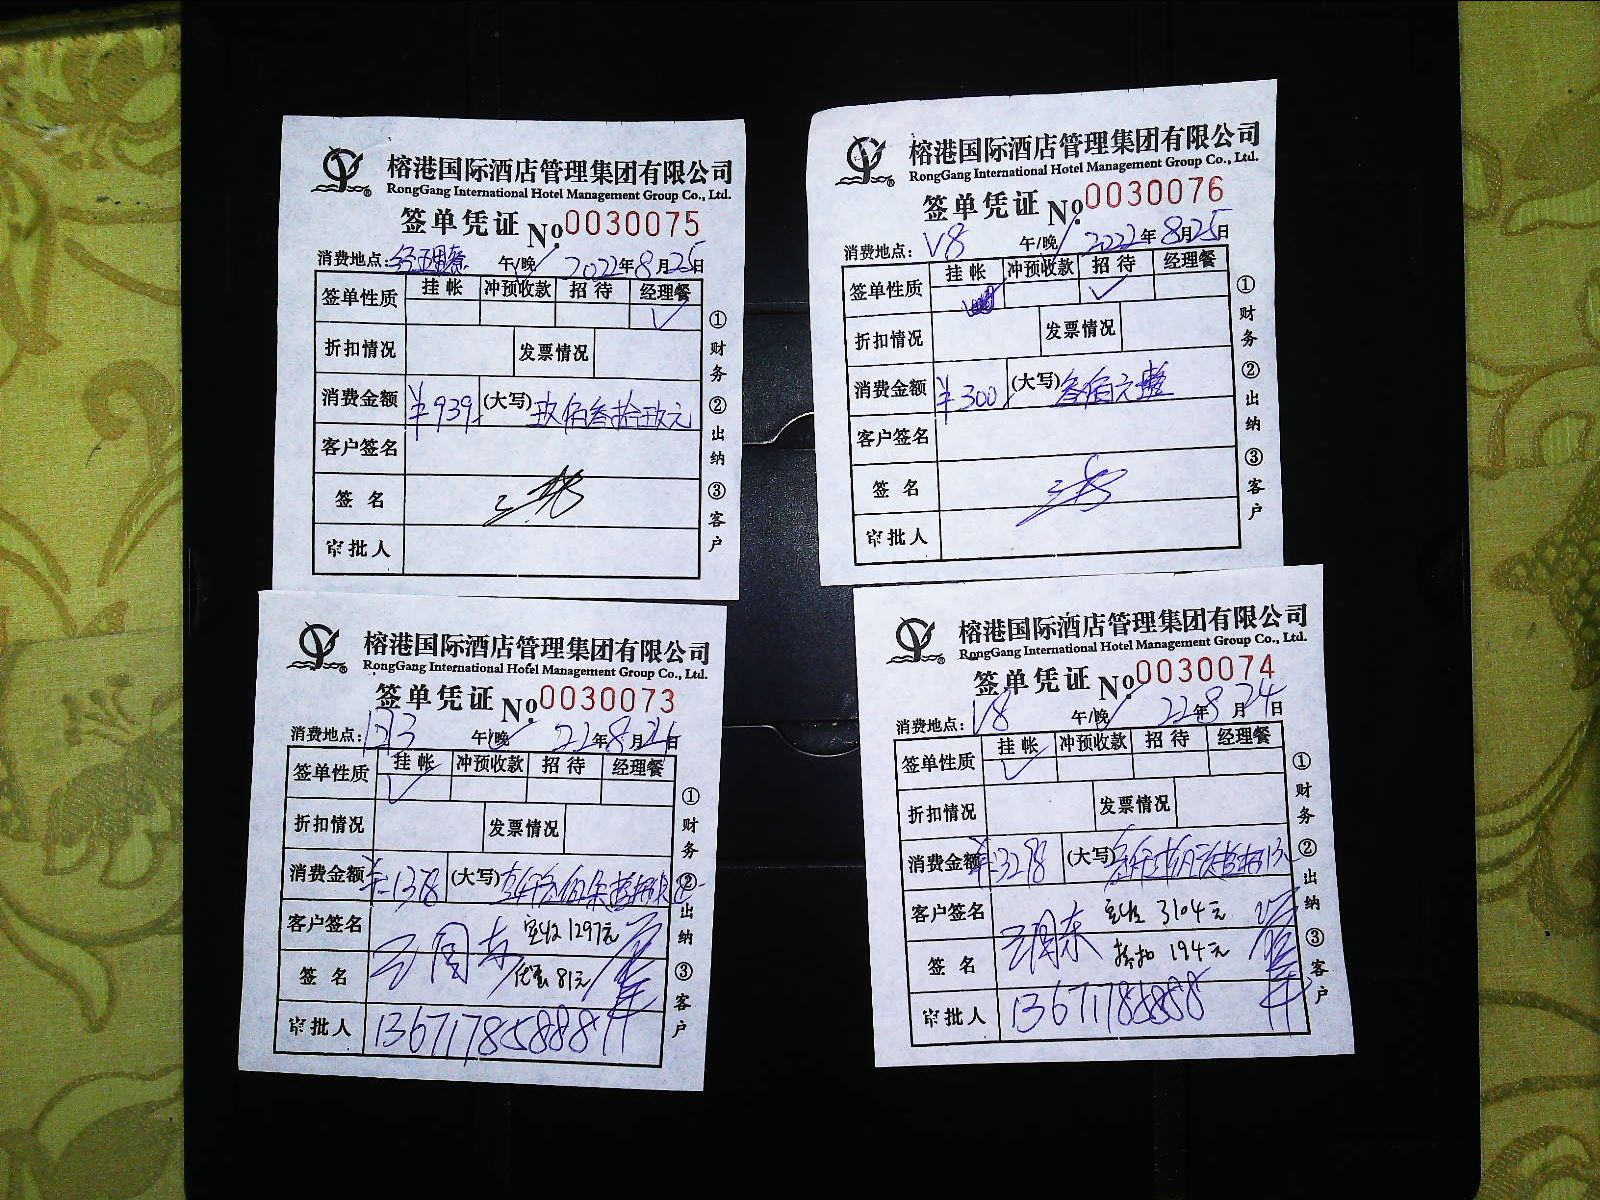 榕港国际酒店管理集团有限公司
RongGang International Hotel Management Group Co., Ltd.
签单凭证 No. 0030075
消费地点: 午/晚 2022年8月25日
签单性质 挂帐 冲预收款 招待 经理餐
折扣情况 发票情况
消费金额 ¥939 (大写) 玖佰叁拾玖元
客户签名
签名
审批人
①财务 ②出纳 ③客户
榕港国际酒店管理集团有限公司
RongGang International Hotel Management Group Co., Ltd.
签单凭证 No. 0030076
消费地点: V8 午/晚 2022年8月25日
签单性质 挂帐 冲预收款 招待 经理餐
折扣情况 发票情况
消费金额 ¥300 (大写) 叁佰元整
客户签名
签名
审批人
①财务 ②出纳 ③客户
榕港国际酒店管理集团有限公司
RongGang International Hotel Management Group Co., Ltd.
签单凭证 No. 0030073
消费地点: 午/晚 22年8月24日
签单性质 挂帐 冲预收款 招待 经理餐
折扣情况 发票情况
消费金额 ¥:1378 (大写)
客户签名 实收 1297元
签名 81元
审批人 13671785888
①财务 ②出纳 ③客户
榕港国际酒店管理集团有限公司
RongGang International Hotel Management Group Co., Ltd.
签单凭证 No. 0030074
消费地点: V8 午/晚 22年8月24日
签单性质 挂帐 冲预收款 招待 经理餐
折扣情况 发票情况
消费金额 ¥:3298 (大写)
客户签名 3104元
签名 折扣 194元
审批人 13671785888
①财务 ②出纳 ③客户